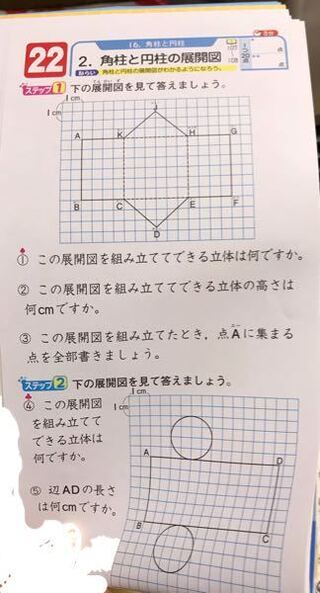 16. 角柱と円柱
22
2. 角柱と円柱の展開図
ねらい 角柱と円柱の展開図がわかるようになろう。
点
点
ステップ1 下の展開図を見て答えましょう。
1cm
1cm
J
A K H G
B C E F
D
① この展開図を組み立ててできる立体は何ですか。
② この展開図を組み立ててできる立体の高さは
何cmですか。
③ この展開図を組み立てたとき，点Aに集まる
点を全部書きましょう。
ステップ2 下の展開図を見て答えましょう。
④ この展開図
を組み立てて
できる立体は
何ですか。
⑤ 辺ADの長さ
は何cmですか。
1cm
1cm
A D
B C